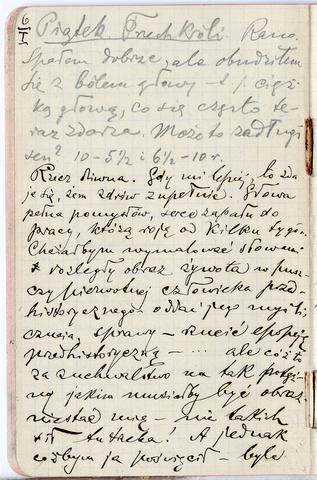 6/I Piątek Trzech Króli Rano.
Spałem dobrze, ale obudziłem
się z bólem głowy – t. j. cięż-
ką głową, co się często te-
raz zdarza. Może to za długi
sen? 10 – 5½ i 6½ – 10 r.
Rzecz dziwna. Gdy mi lepiej, to zda
je się, żem zdrów zupełnie. Głowa
pełna pomysłów, serce zapału do
pracy, którą roję od kilku tygodn.
Chciałbym wymalować słowem
rozległy obraz żywota w pusz-
czy pierwotnej człowieka przed-
historycznego oddać jego myśli,
czucia, sprawy – rzucić epopeję
przedhistoryczną – ... ale cóż to
za zuchwalstwo na tak potęż-
ny jakim musiałby być obraz
nie stać mnie – nie takich
sił tu trzeba! A jednak
cóżbym ja poświęcił – byle